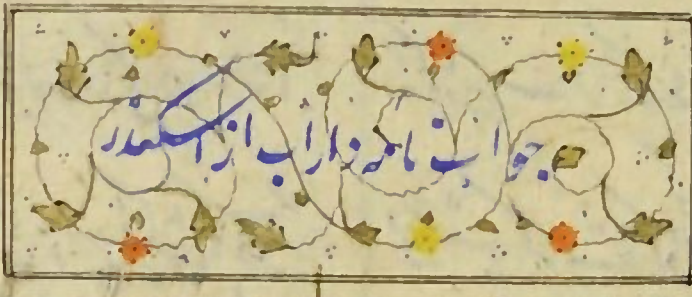 جواب نامه داراب از اسکندر